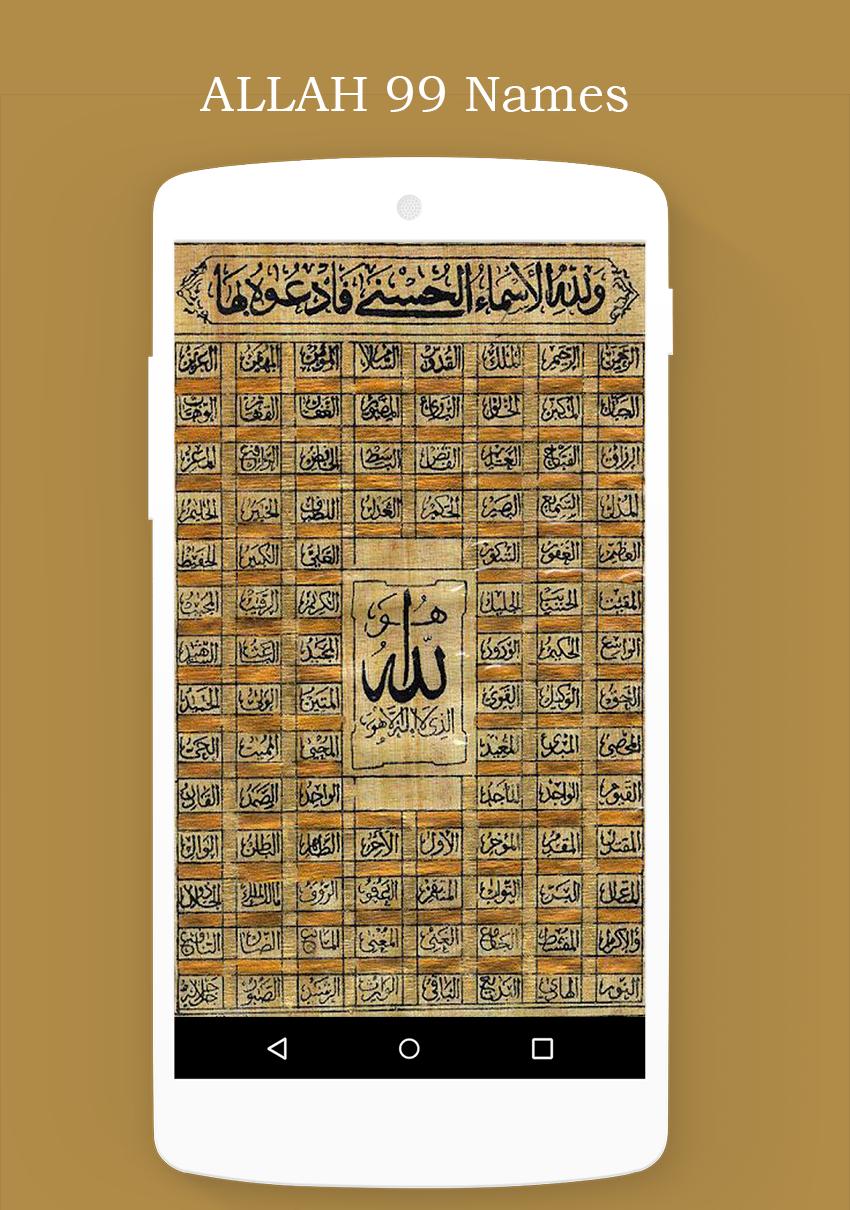 ALLAH 99 Names
ولله الأسماء الحسنى فادعوه بها
الرحمن الرحيم الملك القدوس السلام المؤمن المهيمن العزيز
الجبار المتكبر الخالق البارئ المصور الغفار القهار الوهاب
الرزاق الفتاح العليم القابض الباسط الخافض الرافع المعز
المذل السميع البصير الحكم العدل اللطيف الخبير الحليم
العظيم الغفور الشكور العلي الكبير الحفيظ
المقيت الحسيب الجليل الكريم الرقيب المجيب
الواسع الحكيم الودود المجيد الباعث الشهيد
الحق الوكيل القوي المتين الولي الحميد
المحصي المبدئ المعيد المحيي المميت الحي
القيوم الواجد الماجد الواحد الصمد القادر
هو
الله
الذي لا إله إلا هو
المقتدر المقدم المؤخر الأول الآخر الظاهر الباطن الوالي
المتعال البر التواب المنتقم العفو الرؤف مالك الملك ذو الجلال
والإكرام المقسط الجامع الغني المغني المانع الضار النافع
النور الهادي البديع الباقي الوارث الرشيد الصبور جل جلاله